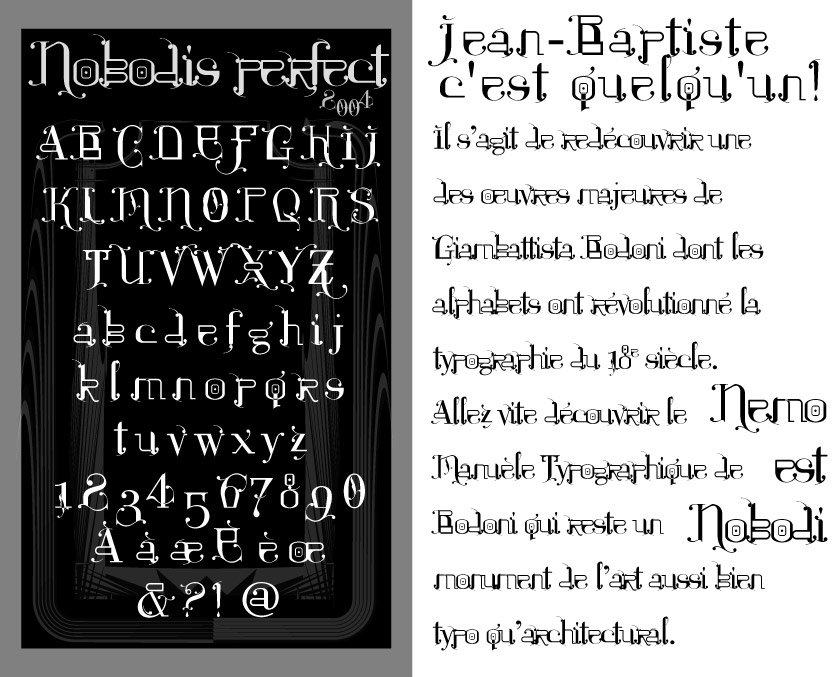 Nobodis perfect
2004
A B C D E F G H I J
K L M N O P Q R S
T U V W X Y Z
a b c d e f g h i j
k l m n o p q r s
t u v w x y z
1 2 3 4 5 6 7 8 9 0
À à æ È è œ
& ? ! @
Jean-Baptiste
c'est quelqu'un!
Il s'agit de redécouvrir une
des oeuvres majeures de
Giambattista Bodoni dont les
alphabets ont révolutionné la
typographie du 18e siècle.
Allez vite découvrir le
Manuèle Typographique de
Bodoni qui reste un
monument de l'art aussi bien
typo qu'architectural.
Nemo
est
Nobodi